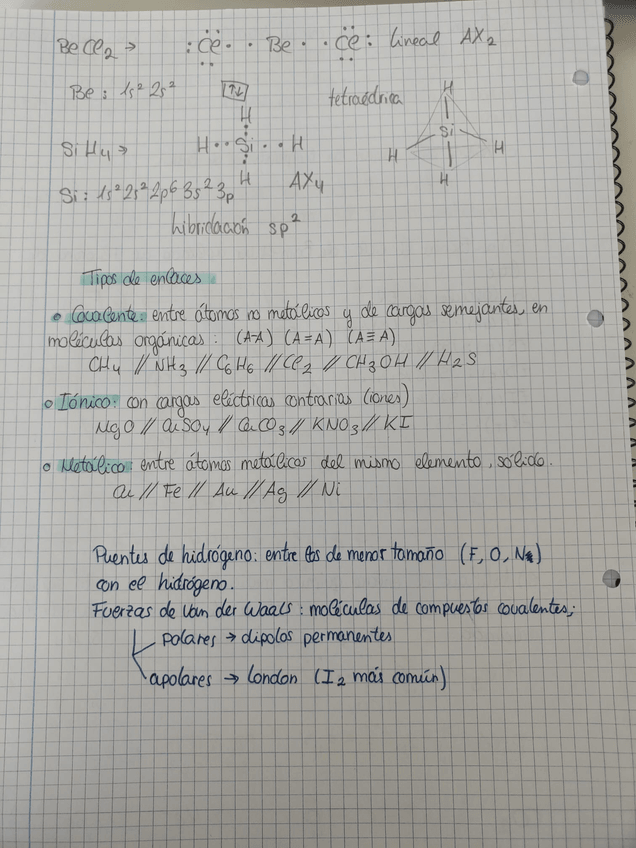 BeCl2 → :Cl· · Be · ·Cl: lineal AX2
Be: 1s² 2s² ↑↓ tetraédrica
H H
SiH4 → H··Si··H Si
H H
H AX4 H
Si: 1s² 2s² 2p⁶ 3s² 3p
hibridación sp²
Tipos de enlaces
• Covalente: entre átomos no metálicos y de cargas semejantes, en
moléculas orgánicas: (A-A) (A=A) (A≡A)
CH4 // NH3 // C6H6 // Cl2 // CH3OH // H2S
• Iónico: con cargas eléctricas contrarias (iones)
MgO // CuSO4 // CaCO3 // KNO3 // KI
• Metálico: entre átomos metálicos del mismo elemento, sólido.
Cu // Fe // Au // Ag // Ni
Puentes de hidrógeno: entre los de menor tamaño (F, O, N)
con el hidrógeno.
Fuerzas de Van der Waals: moléculas de compuestos covalentes;
polares → dipolos permanentes
apolares → London (I2 más común)